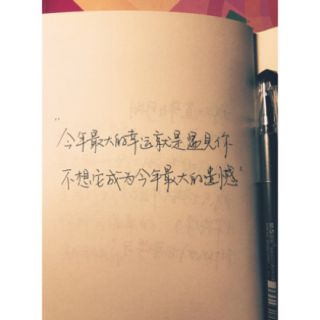 "今年最大的幸运就是遇见你
不想它成为今年最大的遗憾"